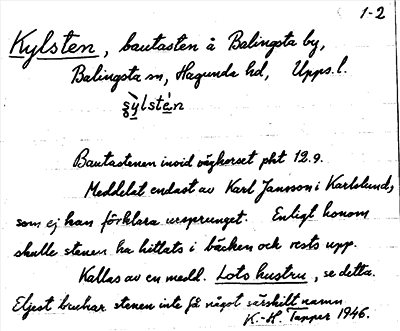 1-2
Kylsten, bautasten å Balingsta by,
Balingsta sn, Hagunda hd, Upps.l.
ꞩy̆lstèn
Bautastenen invid vägkorset pkt 12.9.
Meddelat endast av Karl Jansson i Karlslund,
som ej kan förklara ursprunget. Enligt honom
skulle stenen ha hittats i bäcken och rests upp.
Kallas av en medd. Lots hustru, se detta.
Eljest brukar stenen inte få något särskilt namn
K.-H. Tapper 1946.